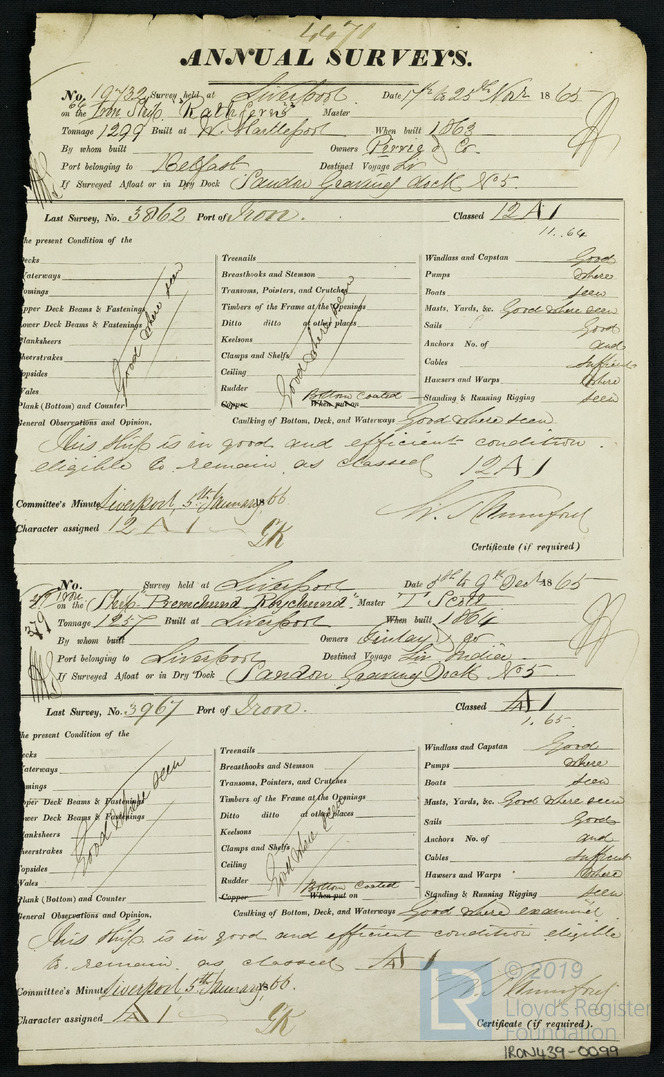 4470
ANNUAL SURVEYS.
No. 19732 Survey held at Liverpool Date 17th to 25th Novr 1865
on the Iron Ship "Rathfern" Master
Tonnage 1299 Built at W. Hartlepool When built 1863
By whom built Owners & Co.
Port belonging to Belfast Destined Voyage Liv
If Surveyed Afloat or in Dry Dock Sandon Graving dock No 5.
Last Survey, No. 3862 Port of Iron. Classed 12 A 1
11.64
The present Condition of the
Decks Treenails Windlass and Capstan Good
Waterways Breasthooks and Stemson Pumps where
Comings Transoms, Pointers, and Crutches Boats seen
Upper Deck Beams & Fastenings Timbers of the Frame at the Openings Masts, Yards, &c. Good where seen
Lower Deck Beams & Fastenings Ditto ditto at other places Sails Good
Planksheers Keelsons Anchors No. of and
Sheerstrakes Clamps and Shelfs Cables sufficient
Topsides Ceiling Hawsers and Warps where
Wales Rudder Standing & Running Rigging seen
Good where seen
Good where seen
Plank (Bottom) and Counter Copper When put on Bottom Coated
General Observations and Opinion, Caulking of Bottom, Deck, and Waterways Good where seen
This Ship is in good and efficient condition
eligible to remain as classed 12 A 1
Committee's Minute Liverpool, 5th January 1866
Character assigned 12 A 1
Certificate (if required)
No. Survey held at Liverpool Date 8th to 9th Decr 1865
on the Iron Ship "Premchund Roychund" Master T Scott
Tonnage 1257 Built at Liverpool When built 1864
By whom built Owners Finlay & Co
Port belonging to Liverpool Destined Voyage Liv India
If Surveyed Afloat or in Dry Dock Sandon Graving Dock No 5
Last Survey, No. 3967 Port of Iron. Classed A 1
1.65
The present Condition of the
Decks Treenails Windlass and Capstan Good
Waterways Breasthooks and Stemson Pumps where
Comings Transoms, Pointers, and Crutches Boats seen
Upper Deck Beams & Fastenings Timbers of the Frame at the Openings Masts, Yards, &c. Good where seen
Lower Deck Beams & Fastenings Ditto ditto at other places Sails Good
Planksheers Keelsons Anchors No. of and
Sheerstrakes Clamps and Shelfs Cables sufficient
Topsides Ceiling Hawsers and Warps where
Wales Rudder Standing & Running Rigging seen
Good where seen
Good where seen
Plank (Bottom) and Counter Copper When put on Bottom Coated
General Observations and Opinion, Caulking of Bottom, Deck, and Waterways Good where examined
This Ship is in good and efficient condition eligible
to remain as classed A 1
Committee's Minute Liverpool, 5th January 1866.
Character assigned A 1
Certificate (if required).
LR © 2019
Lloyd's Register
Foundation
IRON439-0099